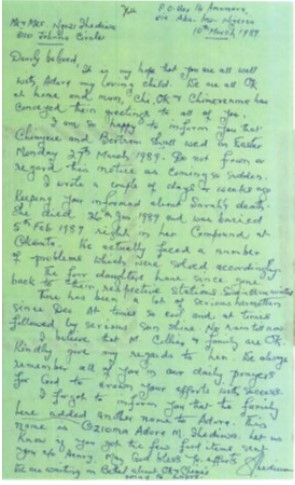 P.O. Box 16 Amavora,
via Aba. Imo. Nigeria
Mr & Mrs. Ngozi Ihediwa 10th March 1989
Johning Circle
Dearly beloved,
It is my hope that you are all well
with Adora my loving child. We are all OK
at home and mum, Che, OK & Chinerenma has
conveyed their greetings to all of you.
I am so happy to inform you that
Chinyere and Bertram shall wed on Easter
Monday 27th March 1989. Do not frown or
regard this notice as coming so sudden.
I wrote a couple of days or weeks ago
keeping you informed about Sarah's death.
She died 26th Jan 1989 and was buried
5th Feb 1989 right in her compound at
We actually faced a number
of problems which were solved accordingly.
The four daughters have since gone
back to their respective stations
There has been a lot of serious
since Dec. At times so cold and at times
followed by serious sun shine. No
I believe that M. Collins & family are OK
Kindly give my regards to her. We always
remember all of you in our daily prayers
for God to crown your efforts with success.
I forgot to inform you that the family
have added another name to Adora. This
name is Ozioma Adora M. Ihediwa. Let us
know if you got the few food items sent
you c/o Henry. May God bless yr. efforts
We are waiting to